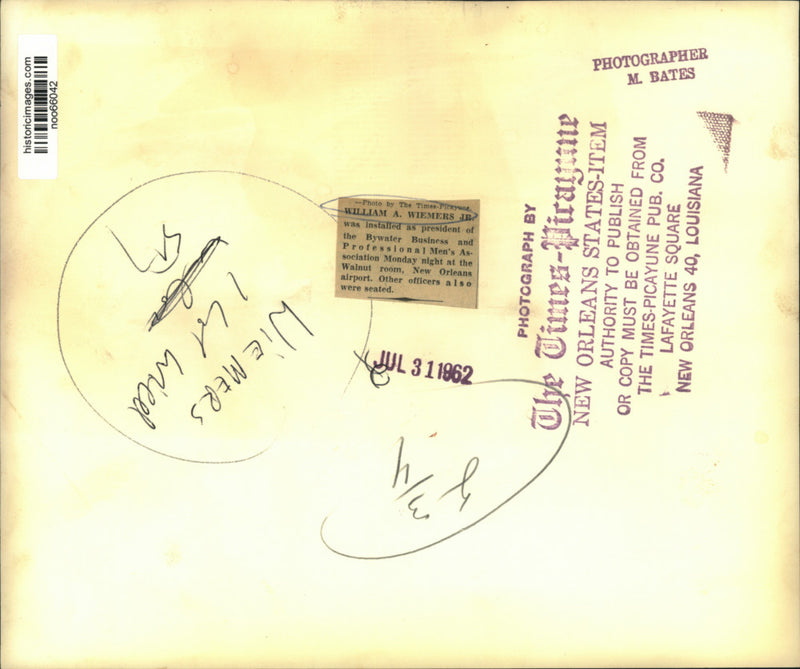 historicimages.com
noo66042
PHOTOGRAPHER
M. BATES
—Photo by The Times-Picayune.
WILLIAM A. WIEMERS JR.
was installed as president of
the Bywater Business and
Professional Men's As-
sociation Monday night at the
Walnut room, New Orleans
airport. Other officers also
were seated.
PHOTOGRAPH BY
The Times-Picayune
NEW ORLEANS STATES-ITEM
AUTHORITY TO PUBLISH
OR COPY MUST BE OBTAINED FROM
THE TIMES-PICAYUNE PUB. CO.
LAFAYETTE SQUARE
NEW ORLEANS 40, LOUISIANA
JUL 31 1962
WIEMERS
1 col
Wed
3/4